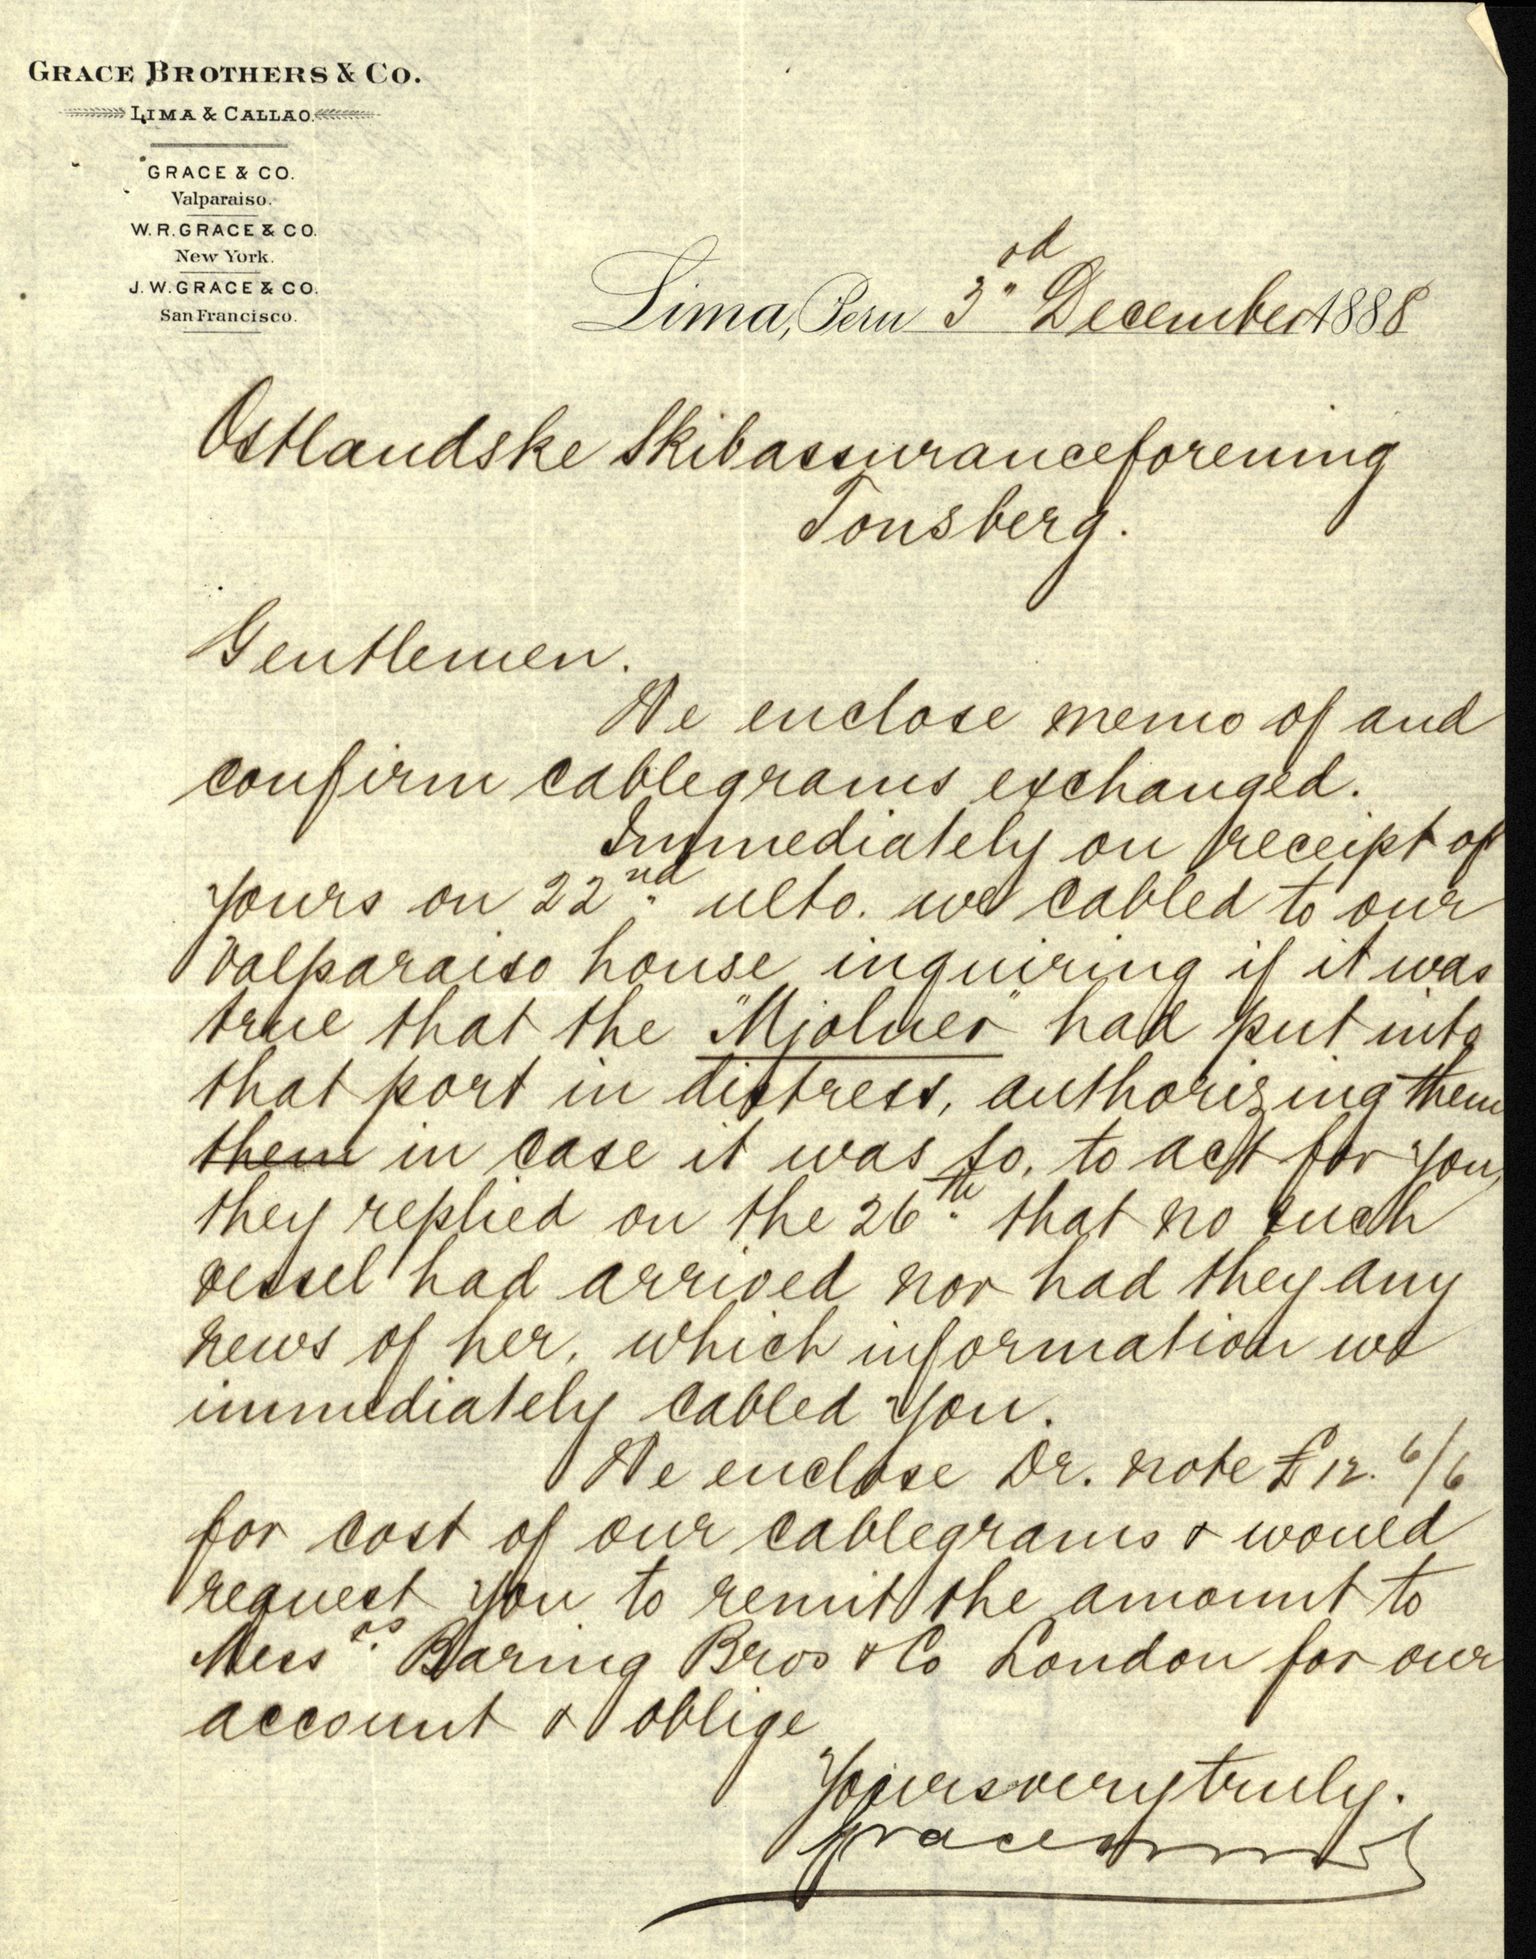 GRACE BROTHERS & CO.
LIMA & CALLAO.
GRACE & CO.
Valparaiso.
W. R. GRACE & CO.
New York.
J. W. GRACE & CO.
San Francisco.
Lima, Peru 3rd December 1888
Ostlandske Skibassuranceforening
Tonsberg.
Gentlemen.
We enclose memo of and
confirm cablegrams exchanged.
Immediately on receipt of
yours on 22nd ulto. we cabled to our
Valparaiso house inquiring if it was
true that the "Mjolner" had put into
that port in distress, authorizing them
them in case it was so, to act for you,
they replied on the 26th that no such
vessel had arrived nor had they any
news of her, which information we
immediately cabled you.
We enclose Dr. note £12. 6/6
for cost of our cablegrams & would
request you to remit the amount to
Messrs. Baring Bros & Co London for our
account & oblige
Yours very truly.
Grace